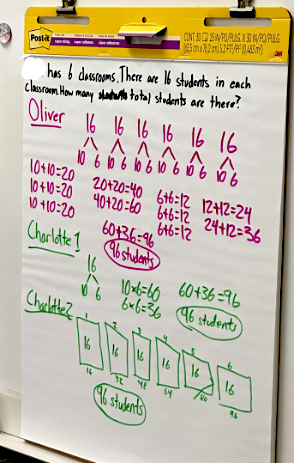 Post-it
super sticky
has 6 classrooms. There are 16 students in each
classroom. How many total students are there?
Oliver
16 16 16 16 16 16
10 6 10 6 10 6 10 6 10 6 10 6
10+10=20
10+10=20
10+10=20
20+20=40
40+20=60
6+6=12
6+6=12
6+6=12
12+12=24
24+12=36
60+36=96
96 students
Charlotte 1
16
10 6
10x6=60
6x6=36
60+36=96
96 students
Charlotte 2
1 2 3 4 5 6
16 16 16 16 16 16
16 32 48 64 80 96
96 students